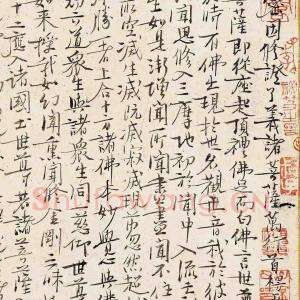 密因修證了義諸菩薩萬行首楞
菩薩即從座起頂禮佛足而白佛言世尊
時有佛出現於世名觀世音我於彼
聞思修入三摩地初於聞中入流亡
生如是漸增聞所聞盡盡聞不住
所空滅生滅既滅寂滅現前忽然超
殊勝一者上合十方諸佛本妙覺心與佛
切六道眾生與諸眾生同一悲仰世尊
如來授我如幻聞熏聞修金剛三昧
十二應入諸國土世尊若諸菩薩